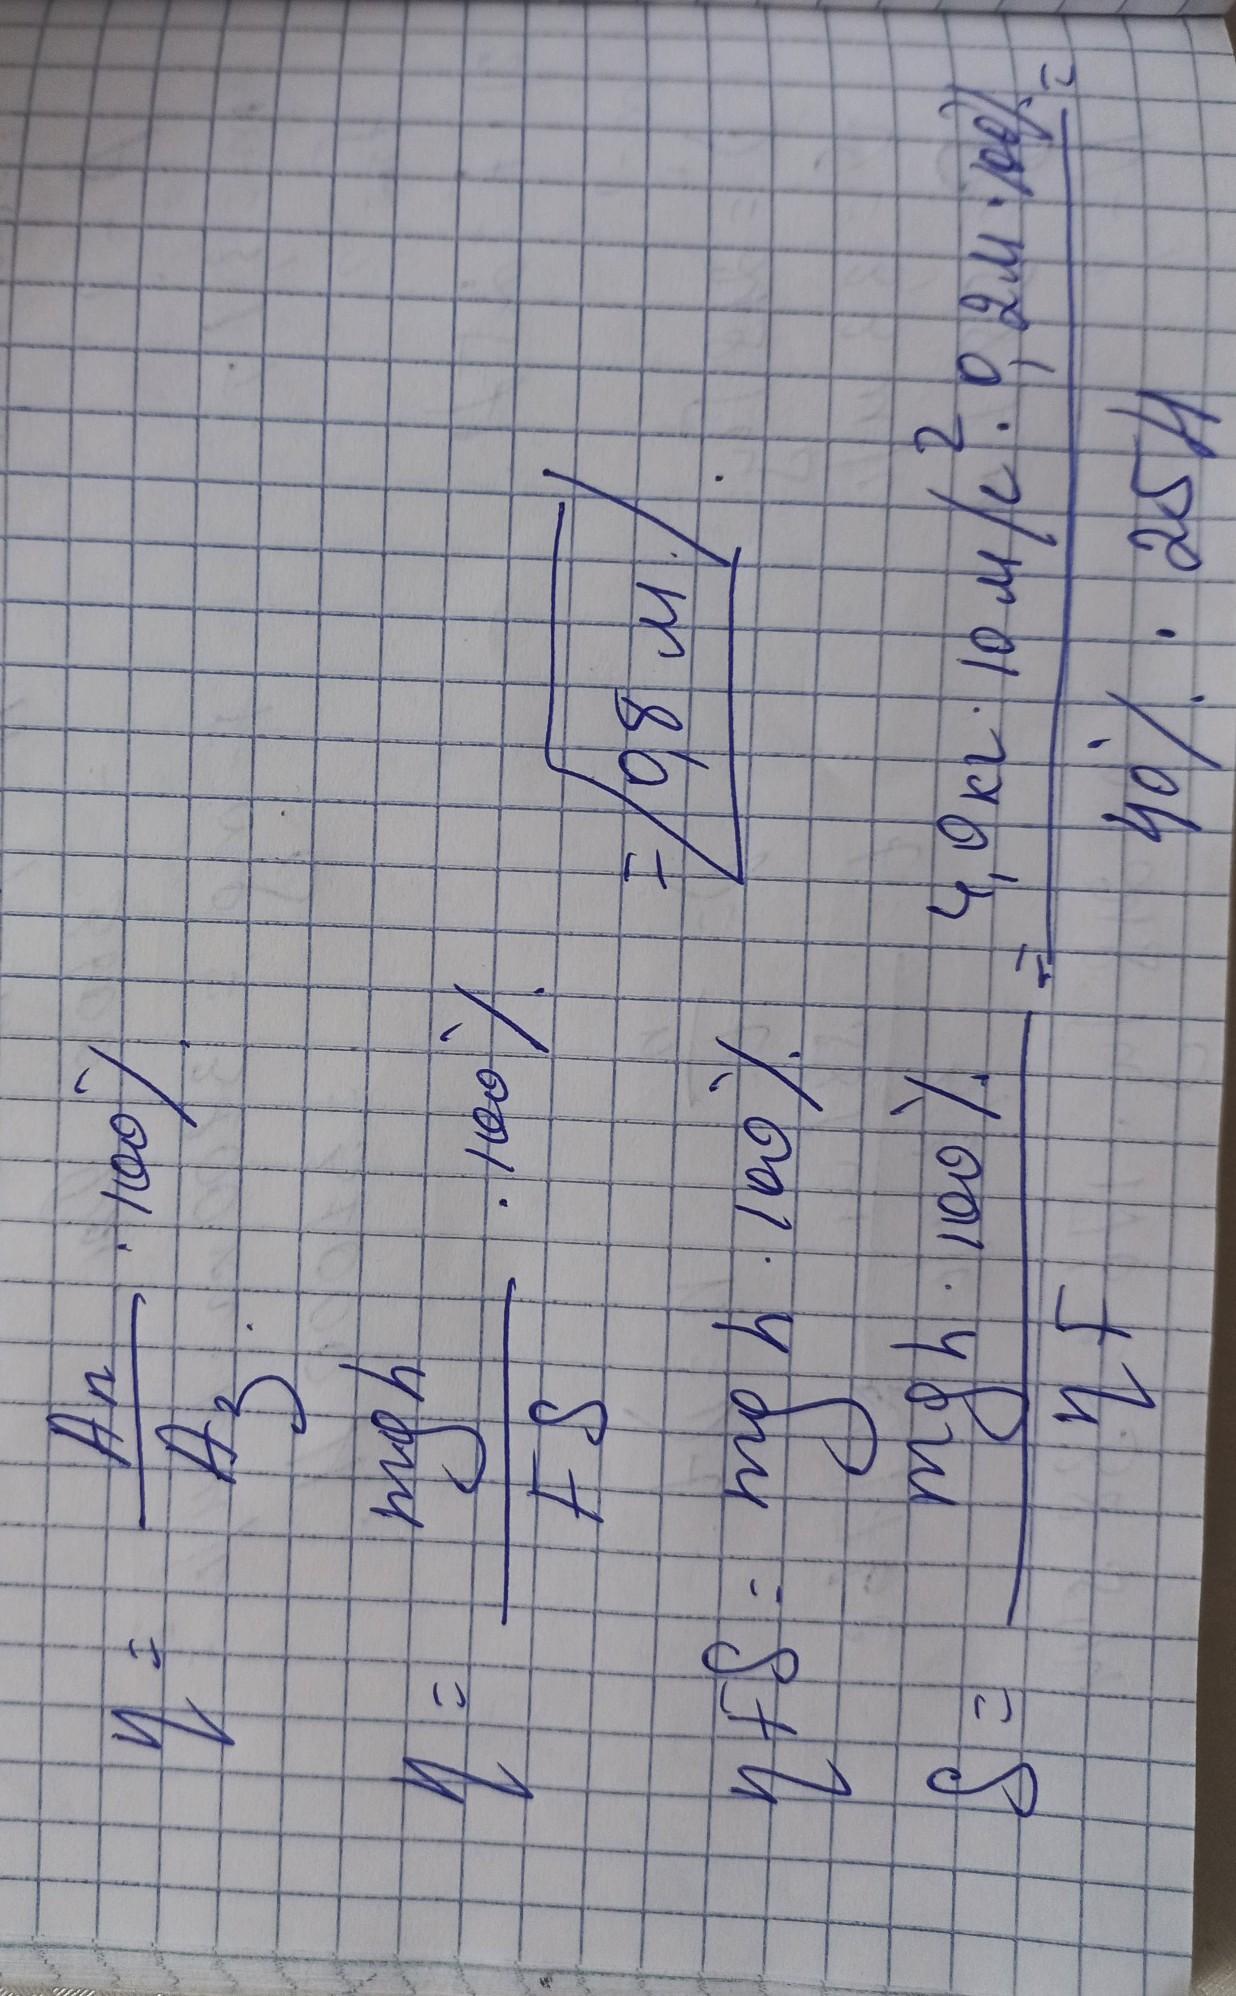 η = Aп / Aз · 100%
η = mgh / FS · 100%
ηFS = mgh · 100%
S = mgh · 100% / ηF = 4,0кг · 10м/с² · 0,2м · 100% / 40% · 25Н =
= 0,8 м